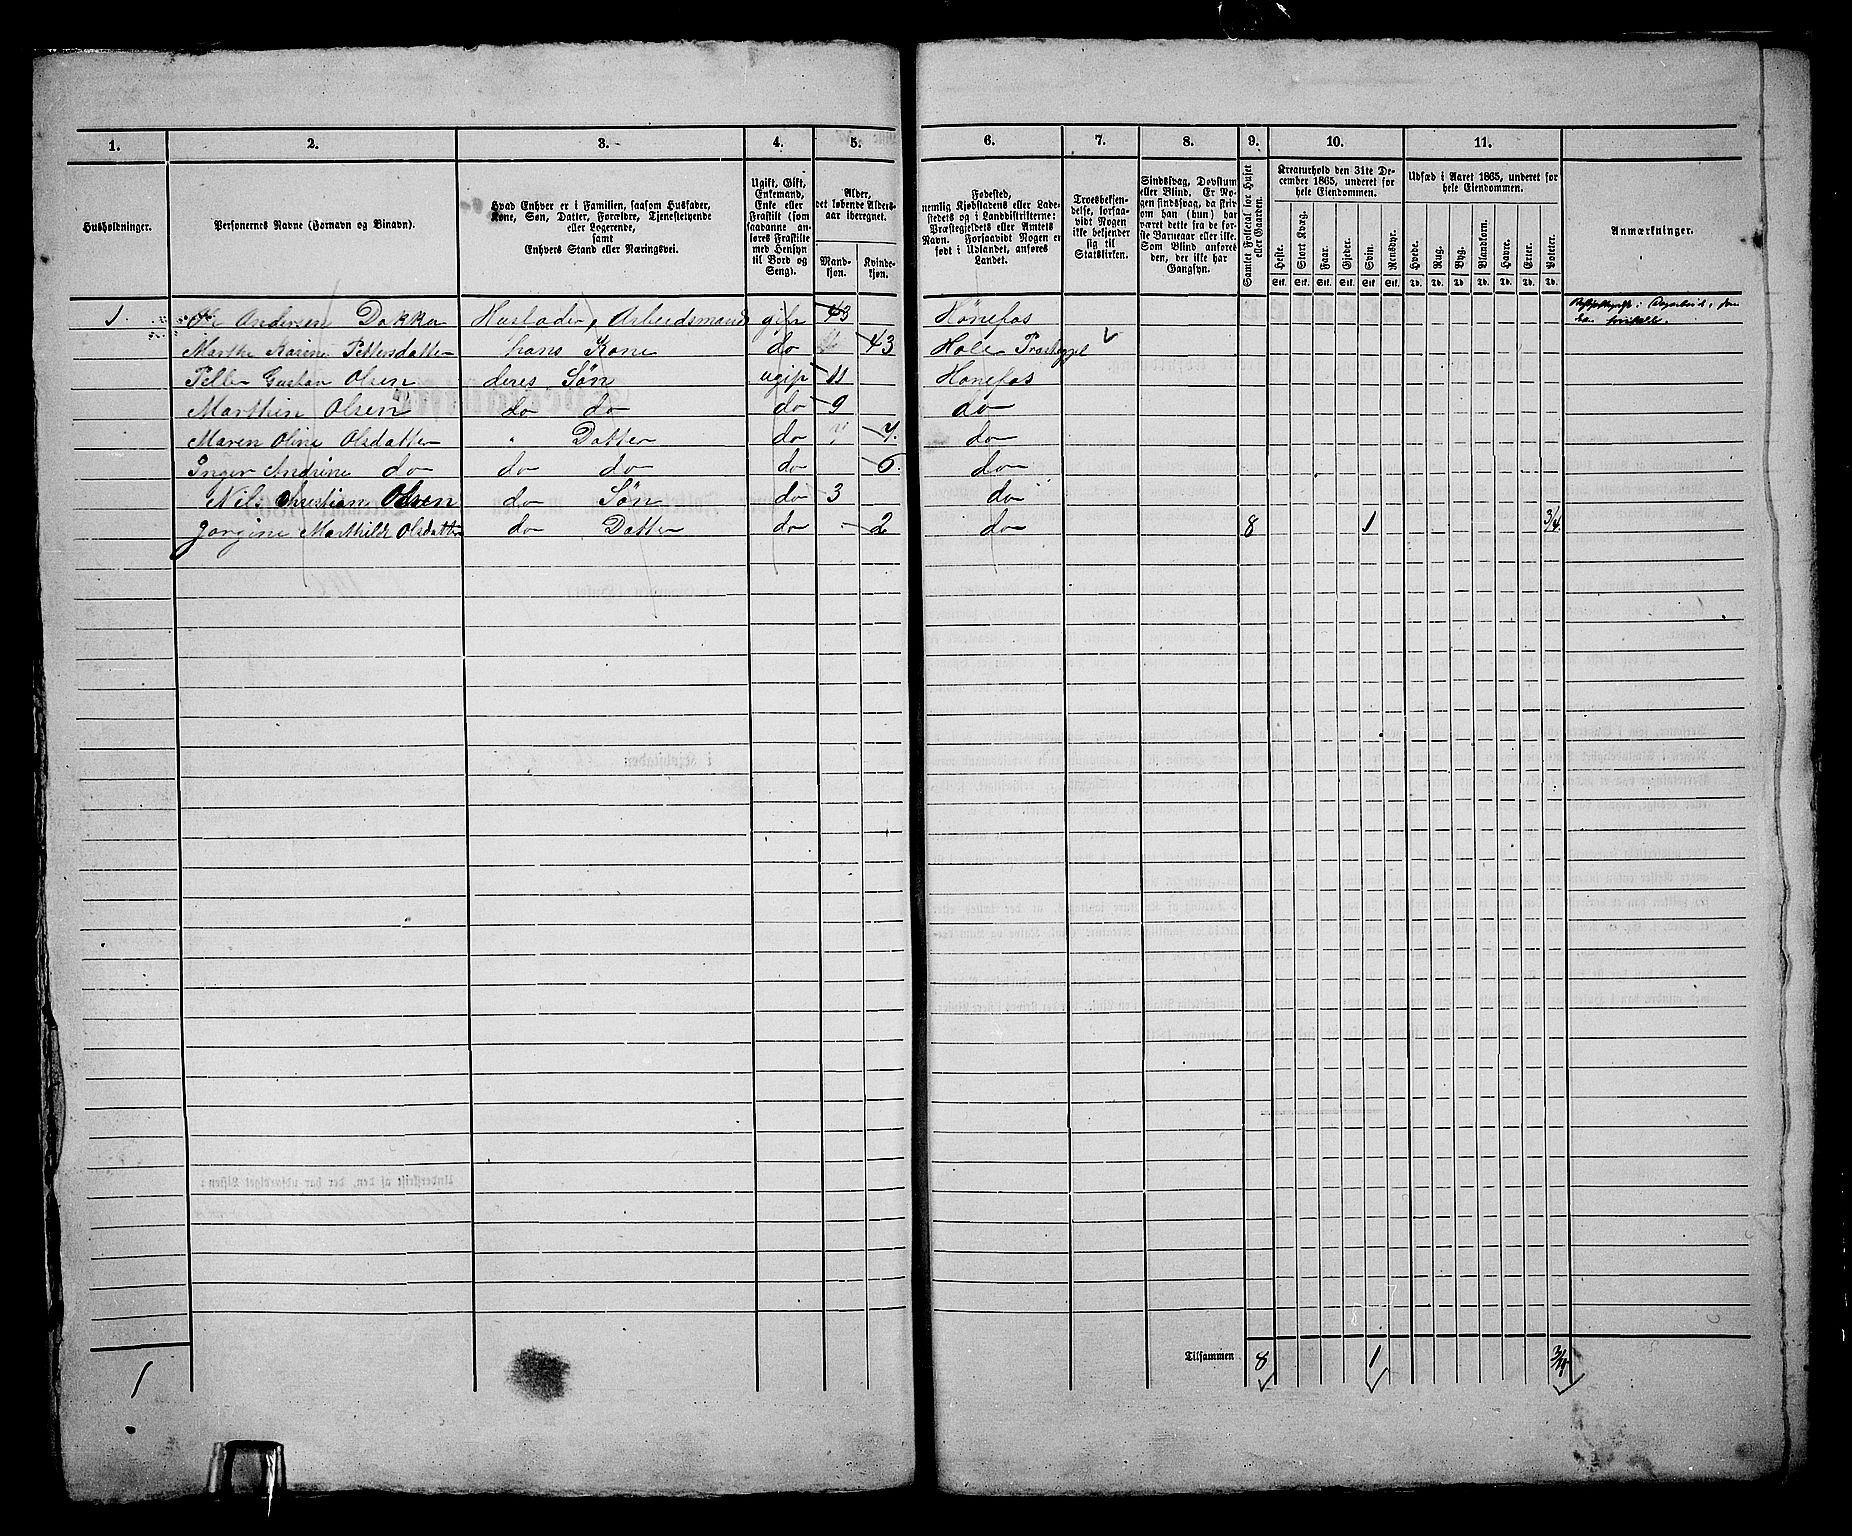 1. 2. 3. 4. 5. 6. 7. 8. 9. 10. 11.
Husholdninger.
Personernes Navne (Fornavn og Binavn).
Hvad Enhver er i Familien, saasom Husfader,
Kone, Søn, Datter, Forældre, Tjenestetyende
eller Logerende,
samt
Enhvers Stand eller Næringsvei.
Ugift, Gift,
Enkemand,
Enke eller
Fraskilt (som
saadanne an-
føres Fraskilte
med Hensyn
til Bord og
Seng).
Alder,
det løbende Alders-
aar iberegnet.
Mand-
kjøn.
Kvinde-
kjøn.
Fødested,
nemlig Kjøbstadens eller Lade-
stedets og i Landdistrikterne:
Præstegjeldets eller Amtets
Navn. Forsaavidt Nogen er
født i Udlandet, anføres
Landet.
Troesbekjen-
delse, forsaa-
vidt Nogen
ikke bekjender
sig til
Statskirken.
Sindssvag, Døvstum
eller Blind. Er No-
gen sindssvag, da skriv
om han (hun) har
været dette fra de før-
ste Barneaar eller ikke.
Som Blind anføres
den, der ikke har
Gangsyn.
Samlet Folketal for Huset
eller Gaarden.
Kreaturhold den 31te De-
cember 1865, underet for
hele Eiendommen.
Heste. Stort Kvæg. Faar. Gjeder. Svin. Rensdyr.
Stk. Stk. Stk. Stk. Stk. Stk.
Udsæd i Aaret 1865, underet for
hele Eiendommen.
Hvede. Rug. Byg. Blandkorn. Havre. Erter. Poteter.
Td. Td. Td. Td. Td. Td. Td.
Anmærkninger.
1. Ole Andersen Dokken Husfader, Arbeidsmand gift 43 Hønefos
Marthe Karine Pettersdatter hans Kone do 43 Hole Præstegjel
Petter Gustav Olsen deres Søn ugift 11 Hønefos
Marthin Olsen do do do 9 do
Maren Oline Olsdatter " Datter do 7. do
Inger Andrine do do do do 5. do
Nils Christian Olsen do Søn do 3 do
Jorgine Marthilde Olsdatter do Datter do 2 do 8 1 3/4.
Tilsammen 8 1 3/4
1